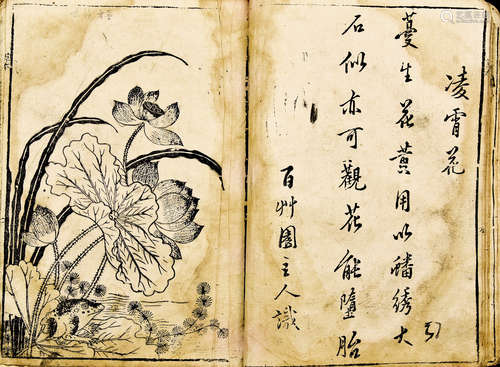 凌霄花
蔓生花黄用以蟠绣大
石似亦可觀花能墮胎
百艸園主人識